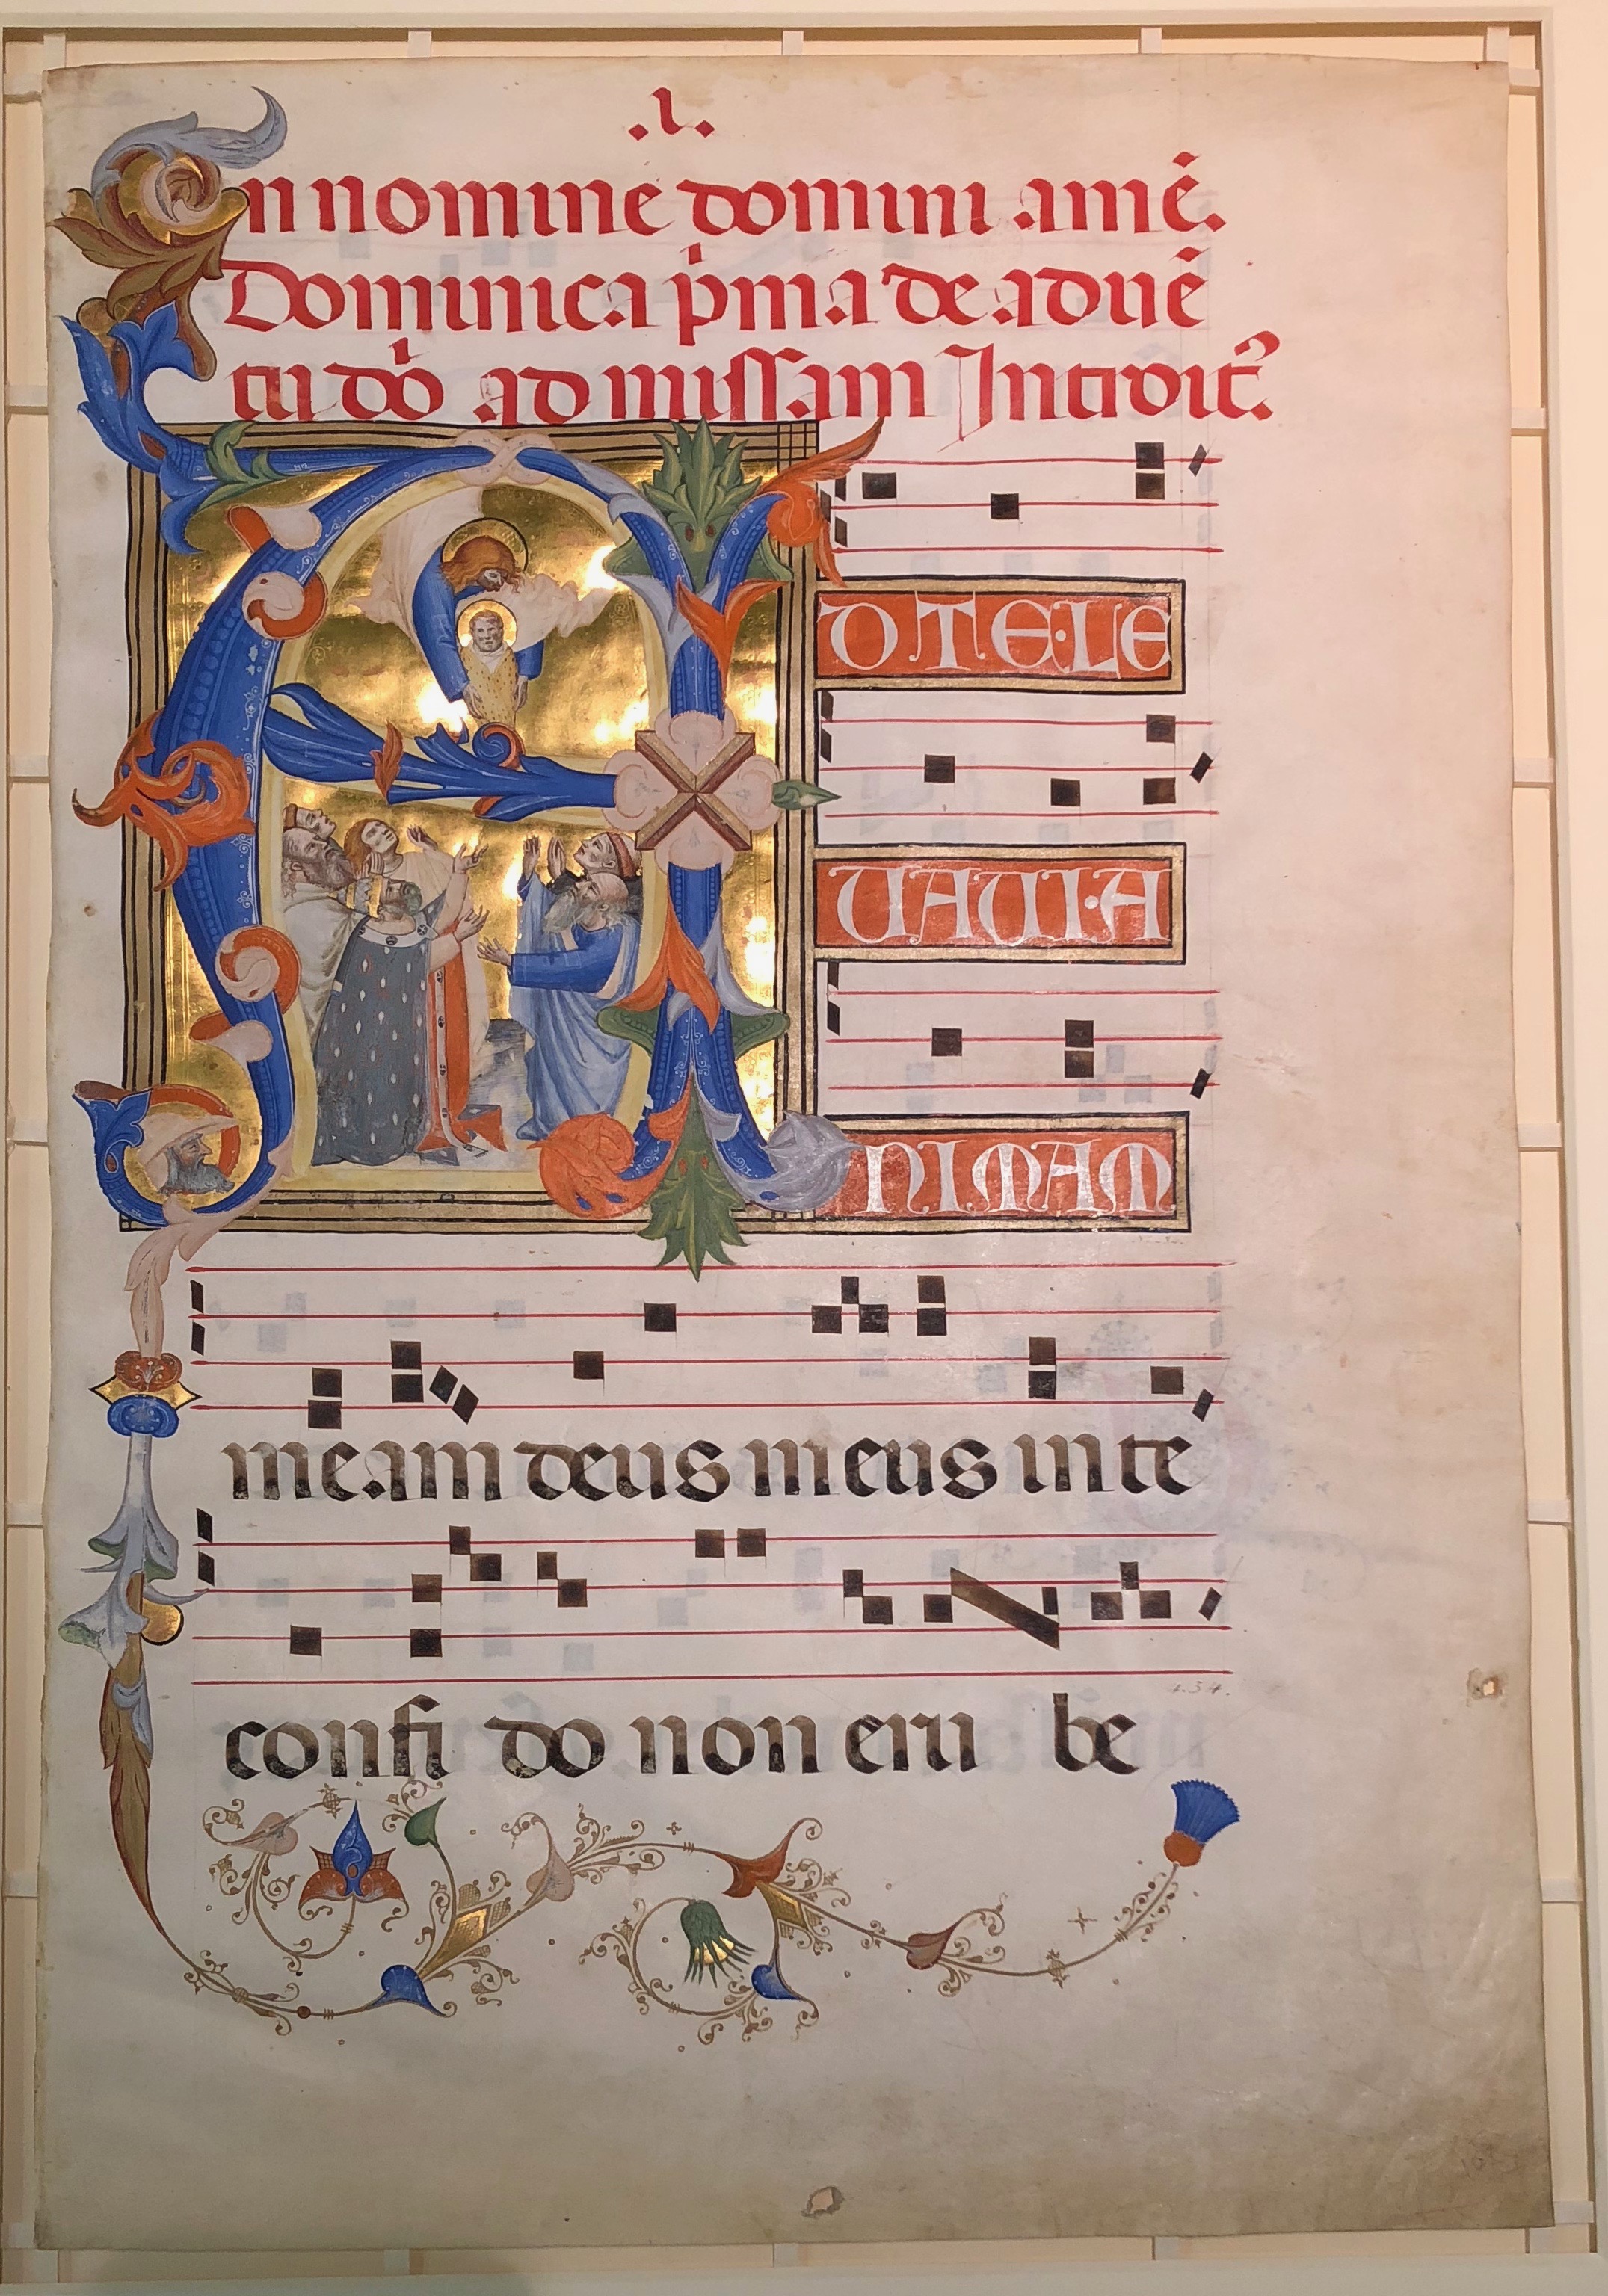 .I.
In nomine domini .amē.
Dominica p̄ma de aduē
tu dn̄i ad missam Introit᷑.
AD.TE.LE
UAUI.A
NI.MAM
meam deus meus in te
confi do non eru be
.134.